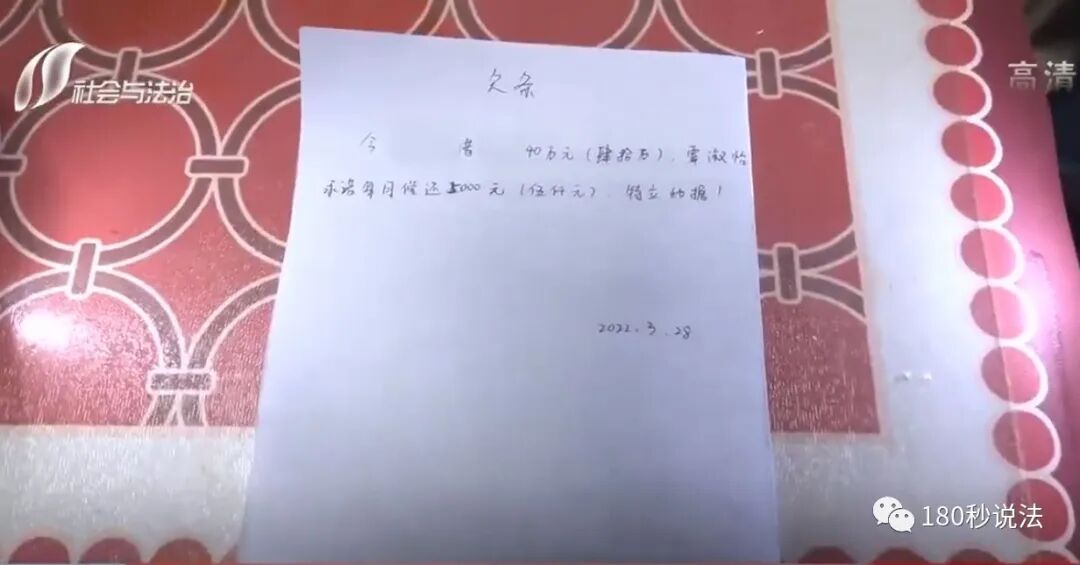 社会与法治
高清
欠条
今 借 40万元（肆拾万）．覃淑怡
承诺每月偿还5000元（伍仟元）．特立此据！
2022.3.28
180秒说法